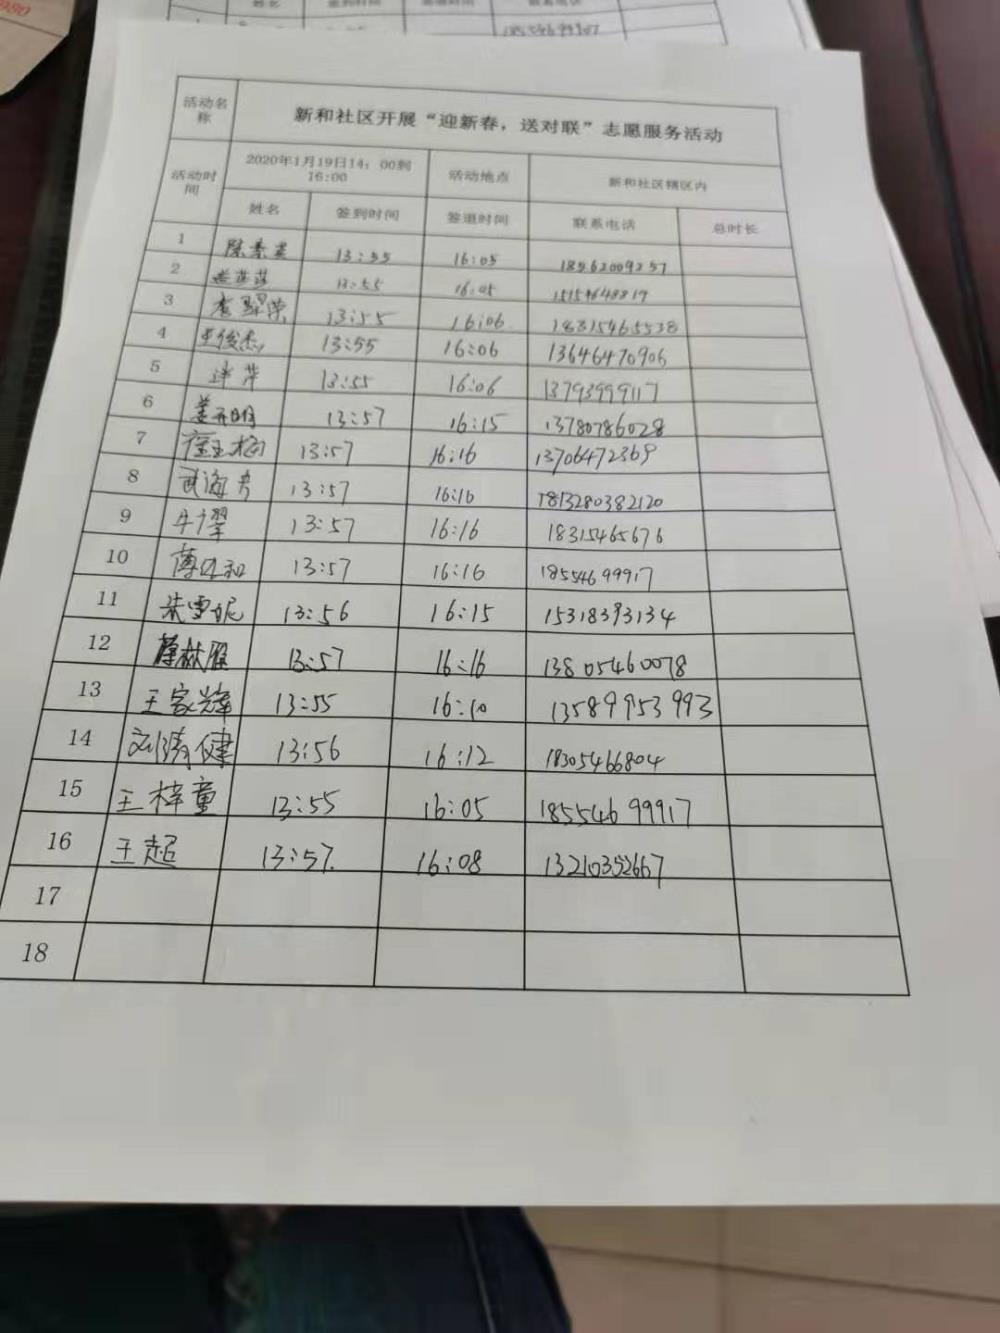 18554699907
活动名称 新和社区开展“迎新春，送对联”志愿服务活动
活动时间 2020年1月19日14：00到16:00 活动地点 新和社区辖区内
姓名 签到时间 签退时间 联系电话 总时长
1 陈素英 13:55 16:05 18562009257
2 13:55 16:05 15154648819
3 李翠荣 13:55 16:06 18315465538
4 王俊杰 13:55 16:06 13646470906
5 萍 13:55 16:06 13793999117
6 姜开明 13:57 16:15 13780786028
7 玉梅 13:57 16:16 13706472369
8 武海芳 13:57 16:16 1813280382120
9 牛 13:57 16:16 18315465676
10 薄 和 13:57 16:16 18554699917
11 柴雪妮 13:56 16:15 15318393134
12 薛林雁 13:57 16:16 13805460078
13 王家辉 13:55 16:10 13589953993
14 刘涛健 13:56 16:12 18305466804
15 王梓童 13:55 16:05 18554699917
16 王超 13:57 16:08 13210352667
17
18